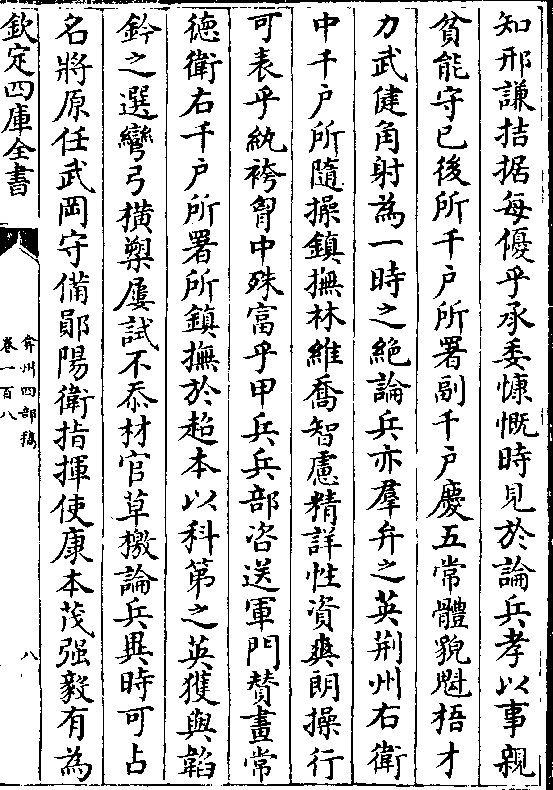 知邢謙拮据每優乎承委慷慨時見於論兵孝以事親
貧能守已後所千户所署副千户慶五常體貌魁梧才
力武健角射為一時之絶論兵亦羣弁之英荆州右衛
中千户所隨操鎮撫林維喬智慮精詳性資爽朗操行
可表乎紈袴胷中殊富乎甲兵兵部咨送軍門賛畫常
徳衛右千户所署所鎮撫於超本以科第之英獲與韜
鈐之選彎弓横槊屢試不忝材官草檄論兵異時可占
名將原任武岡守備鄖陽衛指揮使康本茂强毅有為
欽定四庫全書
弇州四部稿
卷一百八
八